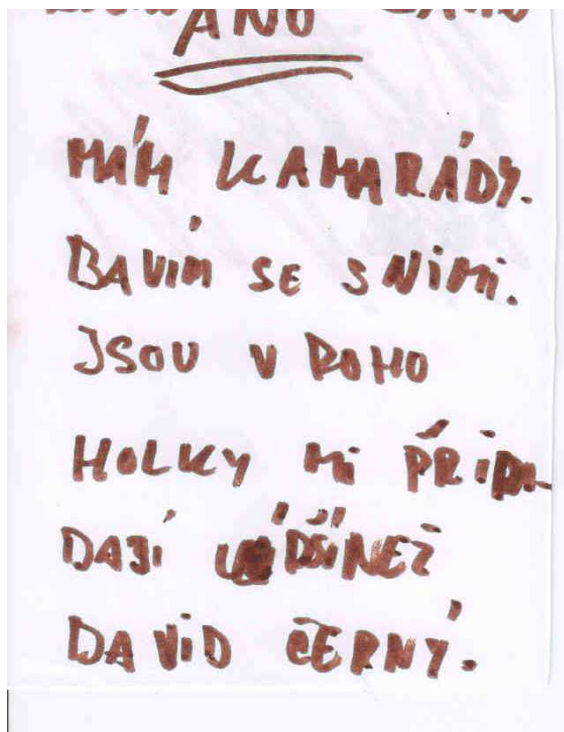 ANO
MÁM KAMARÁDY.
BAVÍM SE S NIMI.
JSOU V POHO
HOLKY MI PŘIPA
DAJÍ NEŽ
DAVID ČERNÝ.